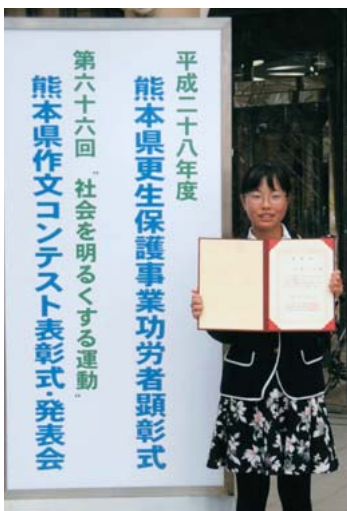 平成二十八年度
熊本県更生保護事業功労者顕彰式
第六十六回 "社会を明るくする運動"
熊本県作文コンテスト表彰式・発表会